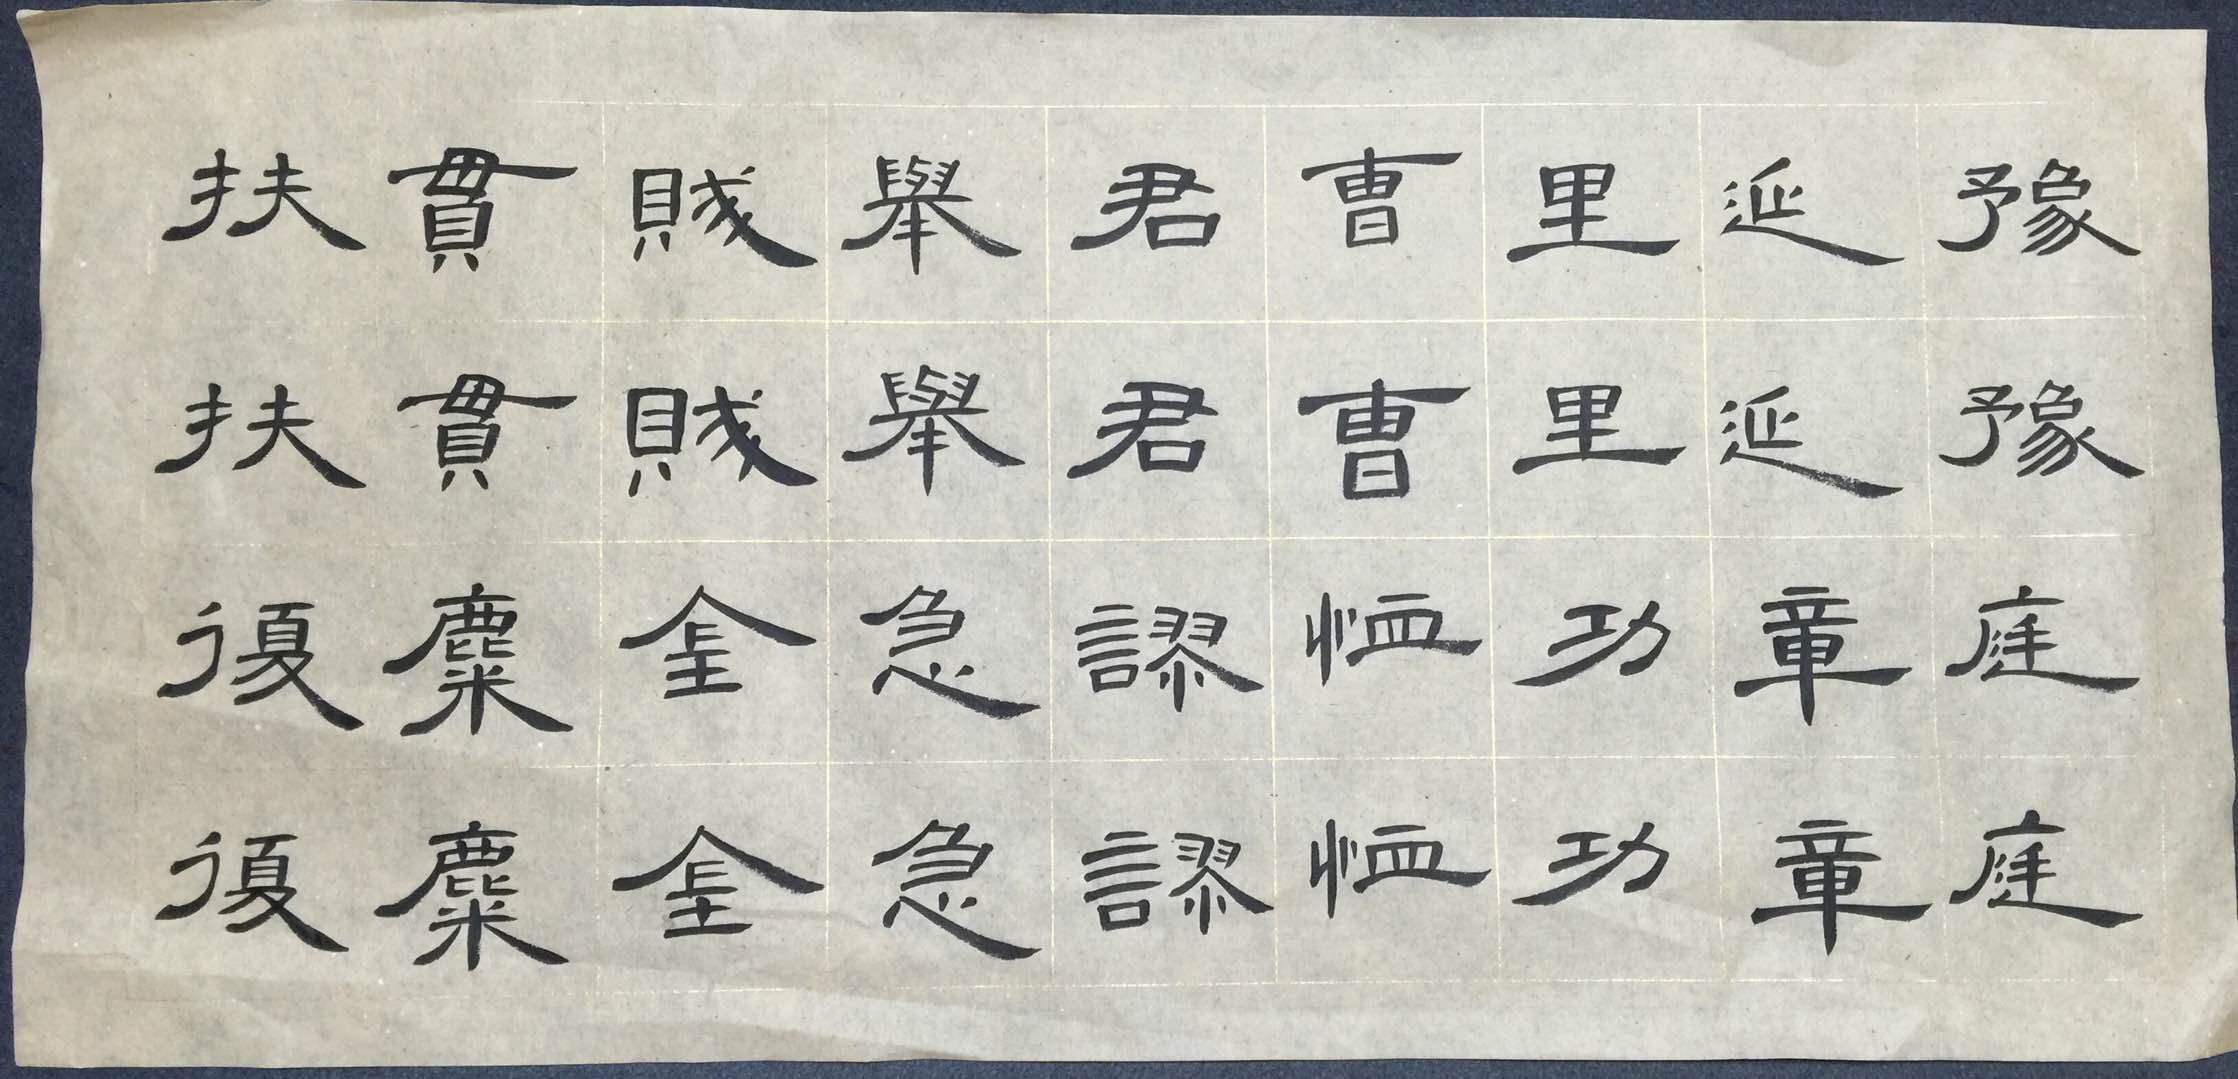 豫豫庭庭
延延章章
里里功功
曹曹恤恤
君君謬謬
舉舉急急
賊賊金金
貫貫麋麋
扶扶復復